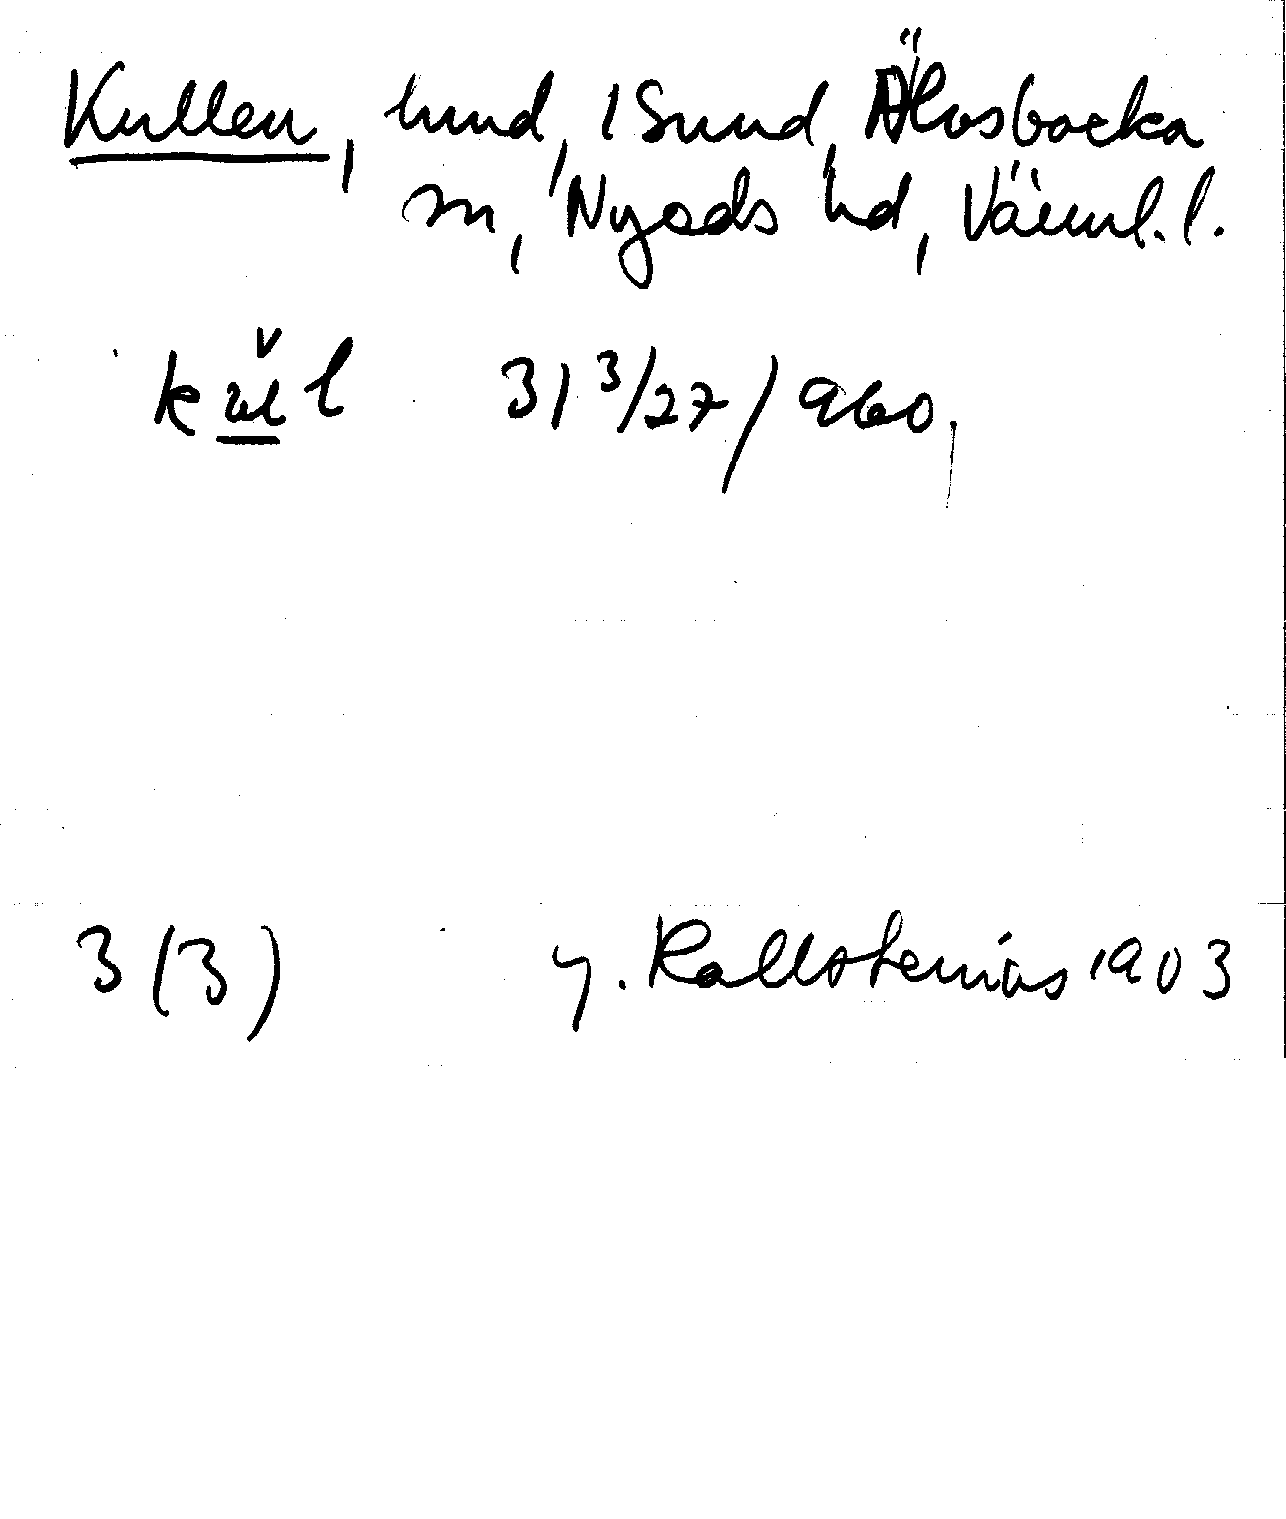 Kullen, hmd, 1 Sund, Älvsbacka
sn, Nyeds hd, Värml. l.
31 3/27 / 960,
3 (3) G. Kallstenius 1903